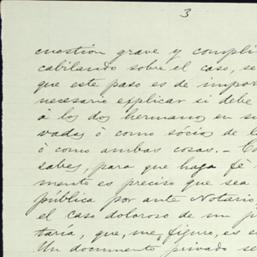 3
cuestion grave y compli
cabilando sobre el caso, se
que este paso es de impor
necesario explicar si debe
á los dos hermanos en su
vada, ó como sócios de l
ó como ambas cosas. — Co
sabes, para que haga fé
mente es preciso que sea
pública por ante Notario,
el caso doloroso de un p
taría, que, me, figuro, es e
Un documento privado se